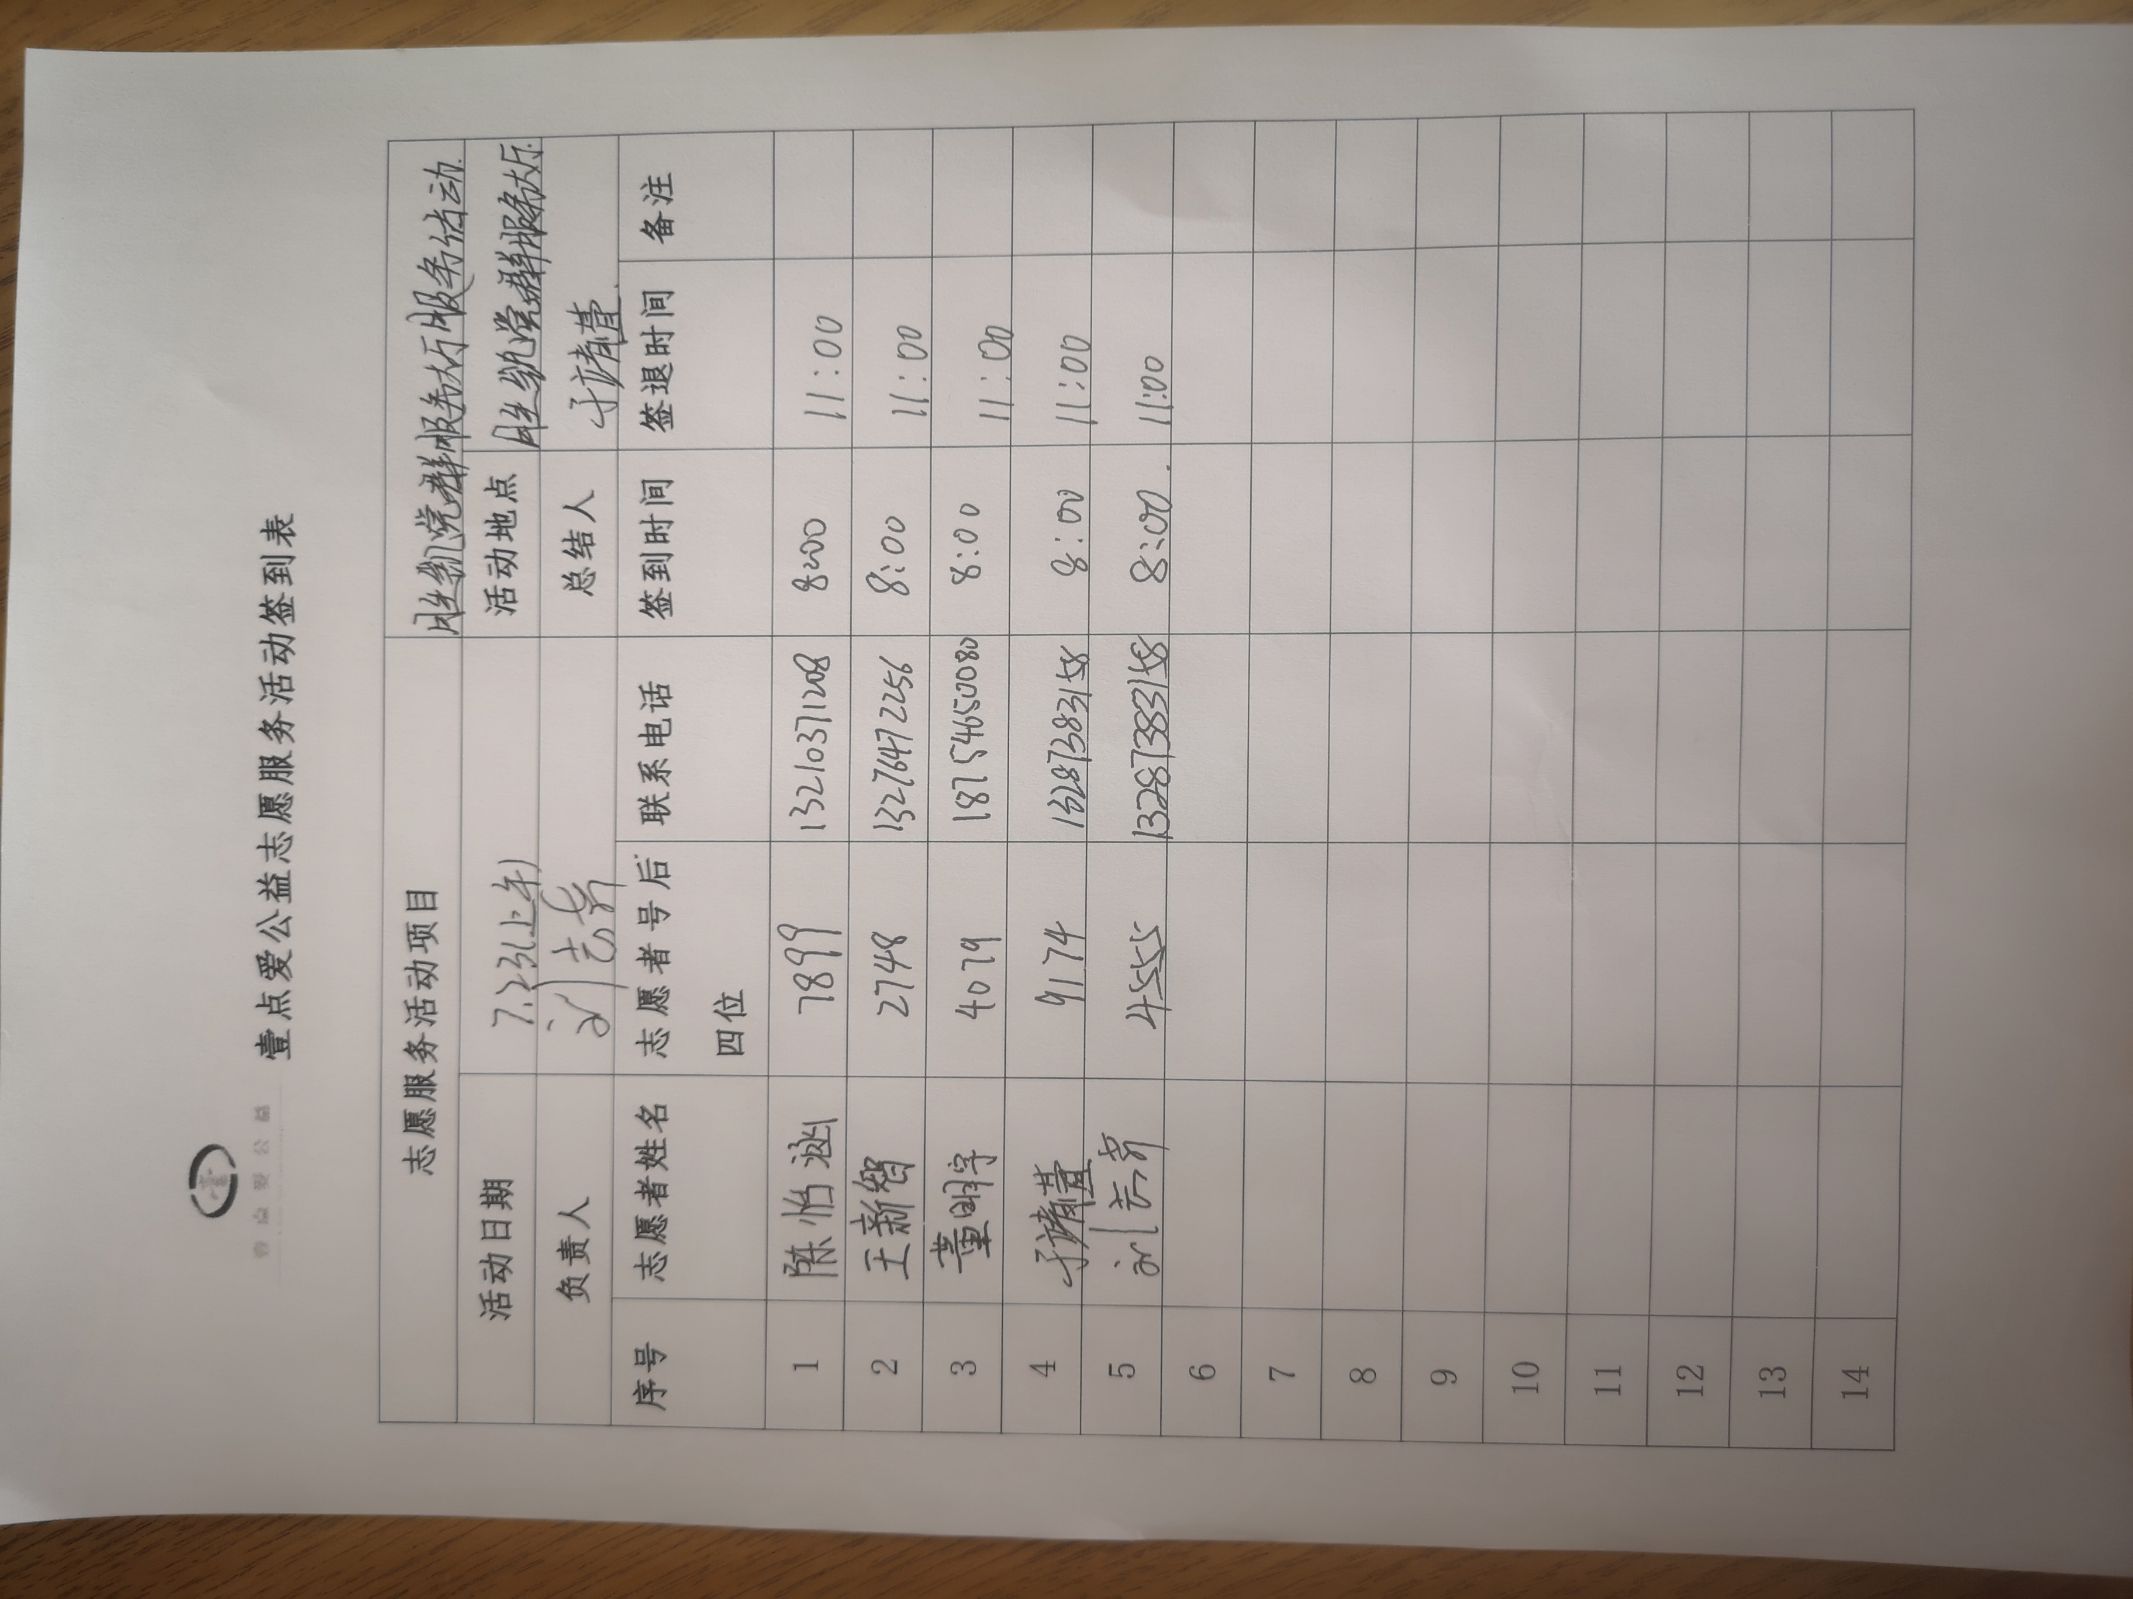 壹点爱公益
壹点爱公益志愿服务活动签到表
志愿服务活动项目 胜凯党群服务大厅服务活动
活动日期 7.23(上午) 活动地点 胜凯党群服务大厅
负责人 总结人
序号 志愿者姓名 志愿者号后四位 联系电话 签到时间 签退时间 备注
1 陈怡涵 7899 13210371208 8:00 11:00
2 王新智 2748 13276472256 8:00 11:00
3 董明宇 4079 18754650080 8:00 11:00
4 9174 13287383158 8:00 11:00
5 4555 13287383158 8:00 11:00
6
7
8
9
10
11
12
13
14